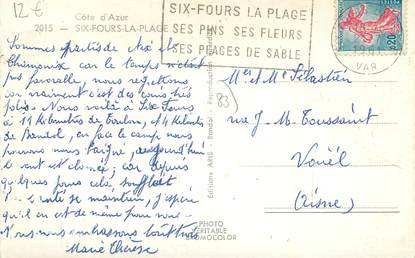 12€
Côte d'Azur
2015 - SIX-FOURS-LA PLAGE
SIX-FOURS LA PLAGE
SES PINS SES FLEURS
SES PLAGES DE SABLE
VAR
0,20
Sommes partis de Aix et
Chamonix car le temps n'était
pas favorable, nous regrettions
car vraiment c'est des coins très
jolis. Nous voilà à Six Fours
à 11 Kilomètres de Toulon, et 4 Kilomètres
de Bandol, en face le camp nous
pouvons nous baigner, aujourd'hui
le vent est car depuis
quelques jours cela soufflait
se maintien, j'espère
qu'il en est de même pour vous.
Nous vous embrassons tout trois
Marie Thérèse
83
Mr et Me Sébastien
rue J-M. Toussaint
Vouël
(Aisne)
Editions ARIS - Bandol
PHOTO
VERITABLE